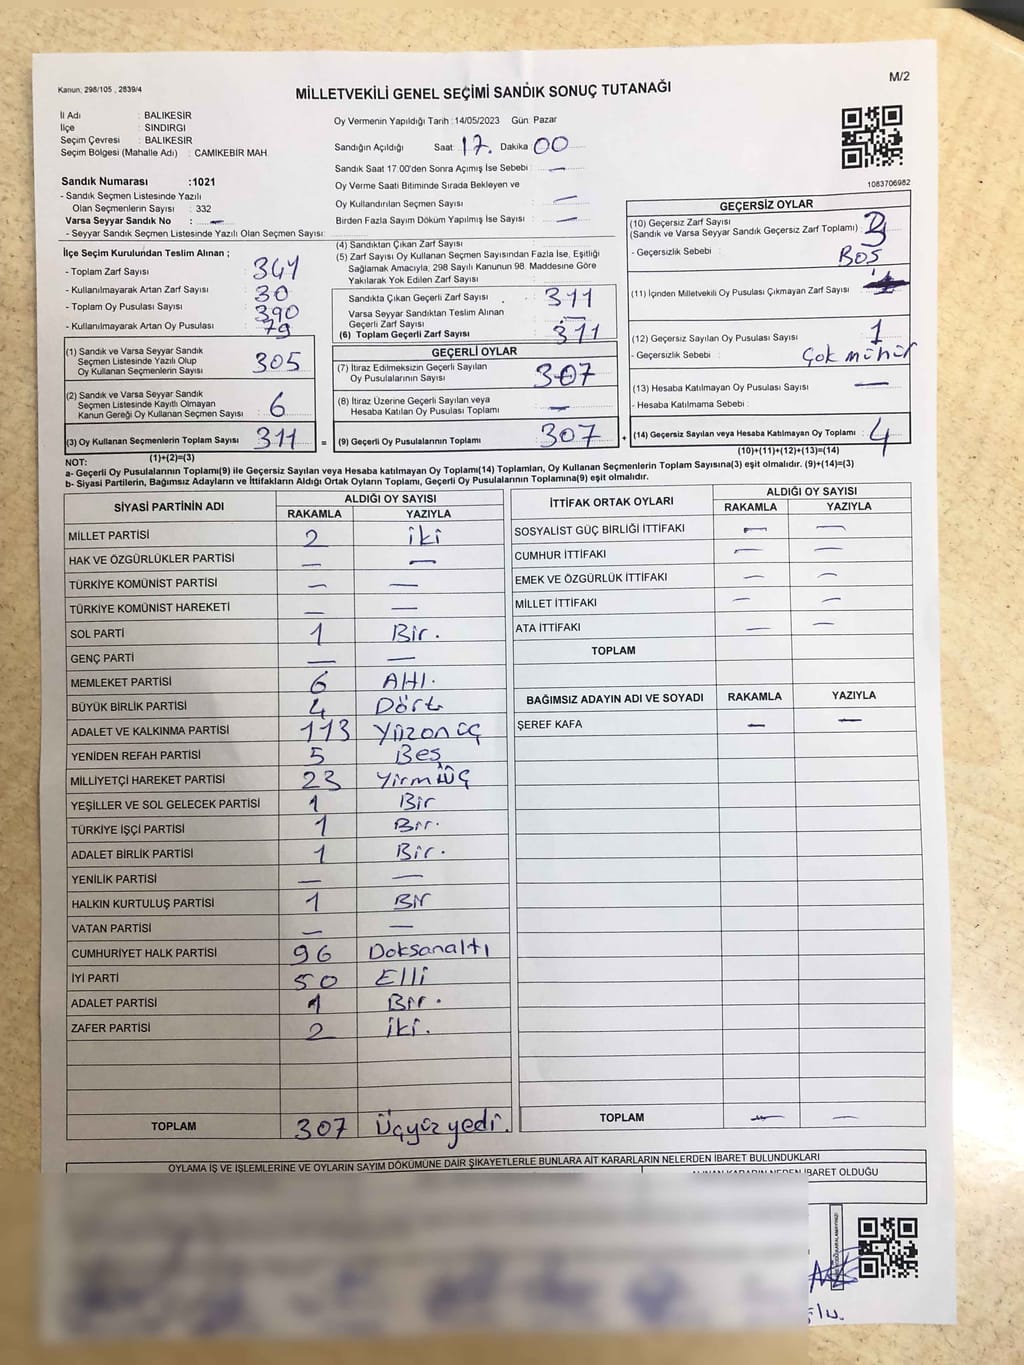 Kanun, 298/105 , 2839/4
M/2
MİLLETVEKİLİ GENEL SEÇİMİ SANDIK SONUÇ TUTANAĞI
İl Adı : BALIKESİR
İlçe : SINDIRGI
Seçim Çevresi : BALIKESİR
Seçim Bölgesi (Mahalle Adı) : CAMİKEBİR MAH.
Sandık Numarası :1021
- Sandık Seçmen Listesinde Yazılı
Olan Seçmenlerin Sayısı : 332
Varsa Seyyar Sandık No : —
- Seyyar Sandık Seçmen Listesinde Yazılı Olan Seçmen Sayısı:
Oy Vermenin Yapıldığı Tarih :14/05/2023 Gün: Pazar
Sandığın Açıldığı Saat 17. Dakika 00
Sandık Saat 17.00'den Sonra Açımış İse Sebebi : —
Oy Verme Saati Bitiminde Sırada Bekleyen ve
Oy Kullandırılan Seçmen Sayısı : —
Birden Fazla Sayım Döküm Yapılmış İse Sayısı : —
1083706982
İlçe Seçim Kurulundan Teslim Alınan ;
- Toplam Zarf Sayısı : 341
- Kullanılmayarak Artan Zarf Sayısı : 30
- Toplam Oy Pusulası Sayısı : 390
- Kullanılmayarak Artan Oy Pusulası : 79
(1) Sandık ve Varsa Seyyar Sandık
Seçmen Listesinde Yazılı Olup
Oy Kullanan Seçmenlerin Sayısı : 305
(2) Sandık ve Varsa Seyyar Sandık
Seçmen Listesinde Kayıtlı Olmayan
Kanun Gereği Oy Kullanan Seçmen Sayısı : 6
(3) Oy Kullanan Seçmenlerin Toplam Sayısı : 311 =
(1)+(2)=(3)
(4) Sandıktan Çıkan Zarf Sayısı :
(5) Zarf Sayısı Oy Kullanan Seçmen Sayısından Fazla İse, Eşitliği
Sağlamak Amacıyla, 298 Sayılı Kanunun 98. Maddesine Göre
Yakılarak Yok Edilen Zarf Sayısı :
Sandıkta Çıkan Geçerli Zarf Sayısı : 311
Varsa Seyyar Sandıktan Teslim Alınan
Geçerli Zarf Sayısı : —
(6) Toplam Geçerli Zarf Sayısı : 311
GEÇERLİ OYLAR
(7) İtiraz Edilmeksizin Geçerli Sayılan
Oy Pusulalarının Sayısı : 307
(8) İtiraz Üzerine Geçerli Sayılan veya
Hesaba Katılan Oy Pusulası Toplamı : —
(9) Geçerli Oy Pusulalarının Toplamı : 307 +
GEÇERSİZ OYLAR
(10) Geçersiz Zarf Sayısı
(Sandık ve Varsa Seyyar Sandık Geçersiz Zarf Toplamı) : 3
- Geçersizlik Sebebi : Boş
(11) İçinden Milletvekili Oy Pusulası Çıkmayan Zarf Sayısı :
(12) Geçersiz Sayılan Oy Pusulası Sayısı : 1
- Geçersizlik Sebebi : Çok mühür
(13) Hesaba Katılmayan Oy Pusulası Sayısı : —
- Hesaba Katılmama Sebebi :
(14) Geçersiz Sayılan veya Hesaba Katılmayan Oy Toplamı : 4
(10)+(11)+(12)+(13)=(14)
NOT:
a- Geçerli Oy Pusulalarının Toplamı(9) ile Geçersiz Sayılan veya Hesaba katılmayan Oy Toplamı(14) Toplamları, Oy Kullanan Seçmenlerin Toplam Sayısına(3) eşit olmalıdır. (9)+(14)=(3)
b- Siyasi Partilerin, Bağımsız Adayların ve İttifakların Aldığı Ortak Oyların Toplamı, Geçerli Oy Pusulalarının Toplamına(9) eşit olmalıdır.
SİYASİ PARTİNİN ADI ALDIĞI OY SAYISI
RAKAMLA YAZIYLA
MİLLET PARTİSİ 2 iki
HAK VE ÖZGÜRLÜKLER PARTİSİ — —
TÜRKİYE KOMÜNİST PARTİSİ — —
TÜRKİYE KOMÜNİST HAREKETİ — —
SOL PARTİ 1 Bir.
GENÇ PARTİ — —
MEMLEKET PARTİSİ 6 Altı.
BÜYÜK BİRLİK PARTİSİ 4 Dört
ADALET VE KALKINMA PARTİSİ 113 Yüzonüç
YENİDEN REFAH PARTİSİ 5 Beş
MİLLİYETÇİ HAREKET PARTİSİ 23 Yirmiüç
YEŞİLLER VE SOL GELECEK PARTİSİ 1 Bir
TÜRKİYE İŞÇİ PARTİSİ 1 Bir.
ADALET BİRLİK PARTİSİ 1 Bir.
YENİLİK PARTİSİ — —
HALKIN KURTULUŞ PARTİSİ 1 Bir
VATAN PARTİSİ — —
CUMHURİYET HALK PARTİSİ 96 Doksanaltı
İYİ PARTİ 50 Elli
ADALET PARTİSİ 1 Bir.
ZAFER PARTİSİ 2 iki.
TOPLAM 307 Üçyüzyedi.
İTTİFAK ORTAK OYLARI ALDIĞI OY SAYISI
RAKAMLA YAZIYLA
SOSYALİST GÜÇ BİRLİĞİ İTTİFAKI — —
CUMHUR İTTİFAKI — —
EMEK VE ÖZGÜRLÜK İTTİFAKI — —
MİLLET İTTİFAKI — —
ATA İTTİFAKI — —
TOPLAM
BAĞIMSIZ ADAYIN ADI VE SOYADI RAKAMLA YAZIYLA
ŞEREF KAFA — —
TOPLAM — —
OYLAMA İŞ VE İŞLEMLERİNE VE OYLARIN SAYIM DÖKÜMÜNE DAİR ŞİKAYETLERLE BUNLARA AİT KARARLARIN NELERDEN İBARET BULUNDUKLARI
ALINAN KARARIN NEDEN İBARET OLDUĞU